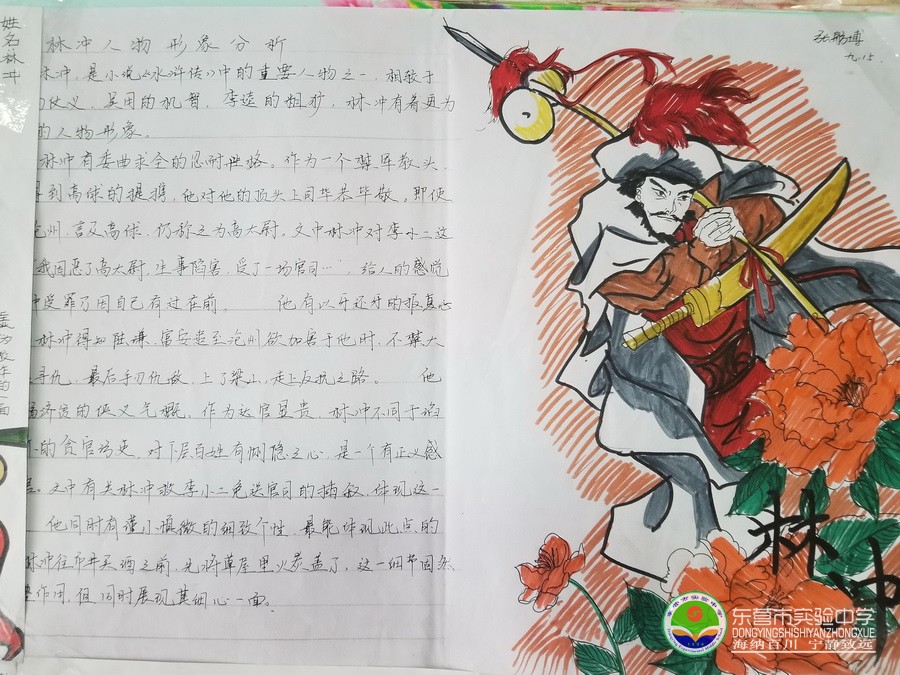 姓名林冲
林冲人物形象分析
张鹏博
九.15.
林冲，是小说《水浒传》中的重要人物之一，相较于
的侠义，吴用的机智，李逵的粗犷，林冲有着更为
的人物形象。
林冲有委曲求全的忍耐性格。作为一个禁军教头，
得到高俅的提携，他对他的顶头上司毕恭毕敬。即使
沧州，言及高俅，仍称之为高太尉。文中林冲对李小二这
"我因恶了高太尉，生事陷害，受了一场官司…"，给人的感觉
中受罪了因自己有过在前。 他有以牙还牙的报复心
林冲得知陆谦、富安赶至沧州欲加害于他时，不禁大
寻仇，最后手刃仇敌，上了梁山，走上反抗之路。 他
济贫的侠义气概。作为达官显贵，林冲不同于
的贪官污吏，对下层百姓有恻隐之心，是一个有正义感
文中有关林冲救李小二免送官司的描叙，体现这一
他同时有谨小慎微的细致个性，最能体现此点的
林冲往市井买酒之前，先将草屋里火炭盖了，这一细节固然
作用，但同时展现其细心一面。
林冲
东营市实验中学
DONGYINGSHISHIYANZHONGXUE
海纳百川 宁静致远